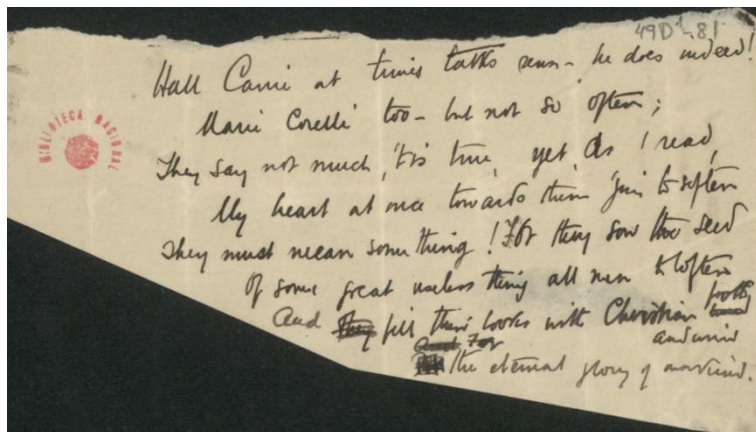 49D¹-81
Hall Caine at times talks sense – he does indeed!
Marie Corelli too – but not so often;
They say not much, 'tis true, yet, as I read,
My heart at once towards them 'gins to soften
They must mean something! For they sow the seed
Of some great useless thing all men to soften
And they fill their books with Christian
and
And For
the eternal glory of mankind.
BIBLIOTECA NACIONAL